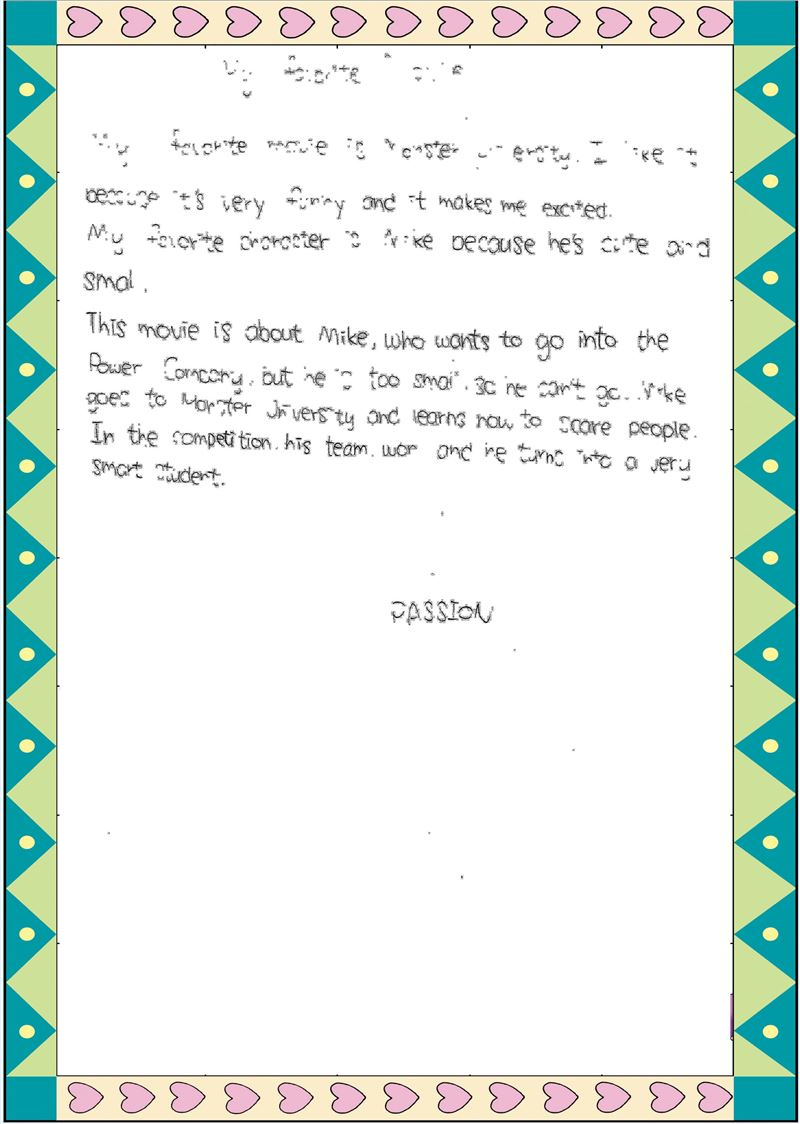 My favorite movie
My favorite movie is Monster University. I like it
because it's very funny and it makes me excited.
My favorite character is Mike because he's cute and
smal.
This movie is about Mike, who wants to go into the
Power Company. but he is too smal. so he can't go. Mike
goes to Monster University and learns how to scare people.
In the competition. his team. won and he turns into a very
smart student.
PASSION